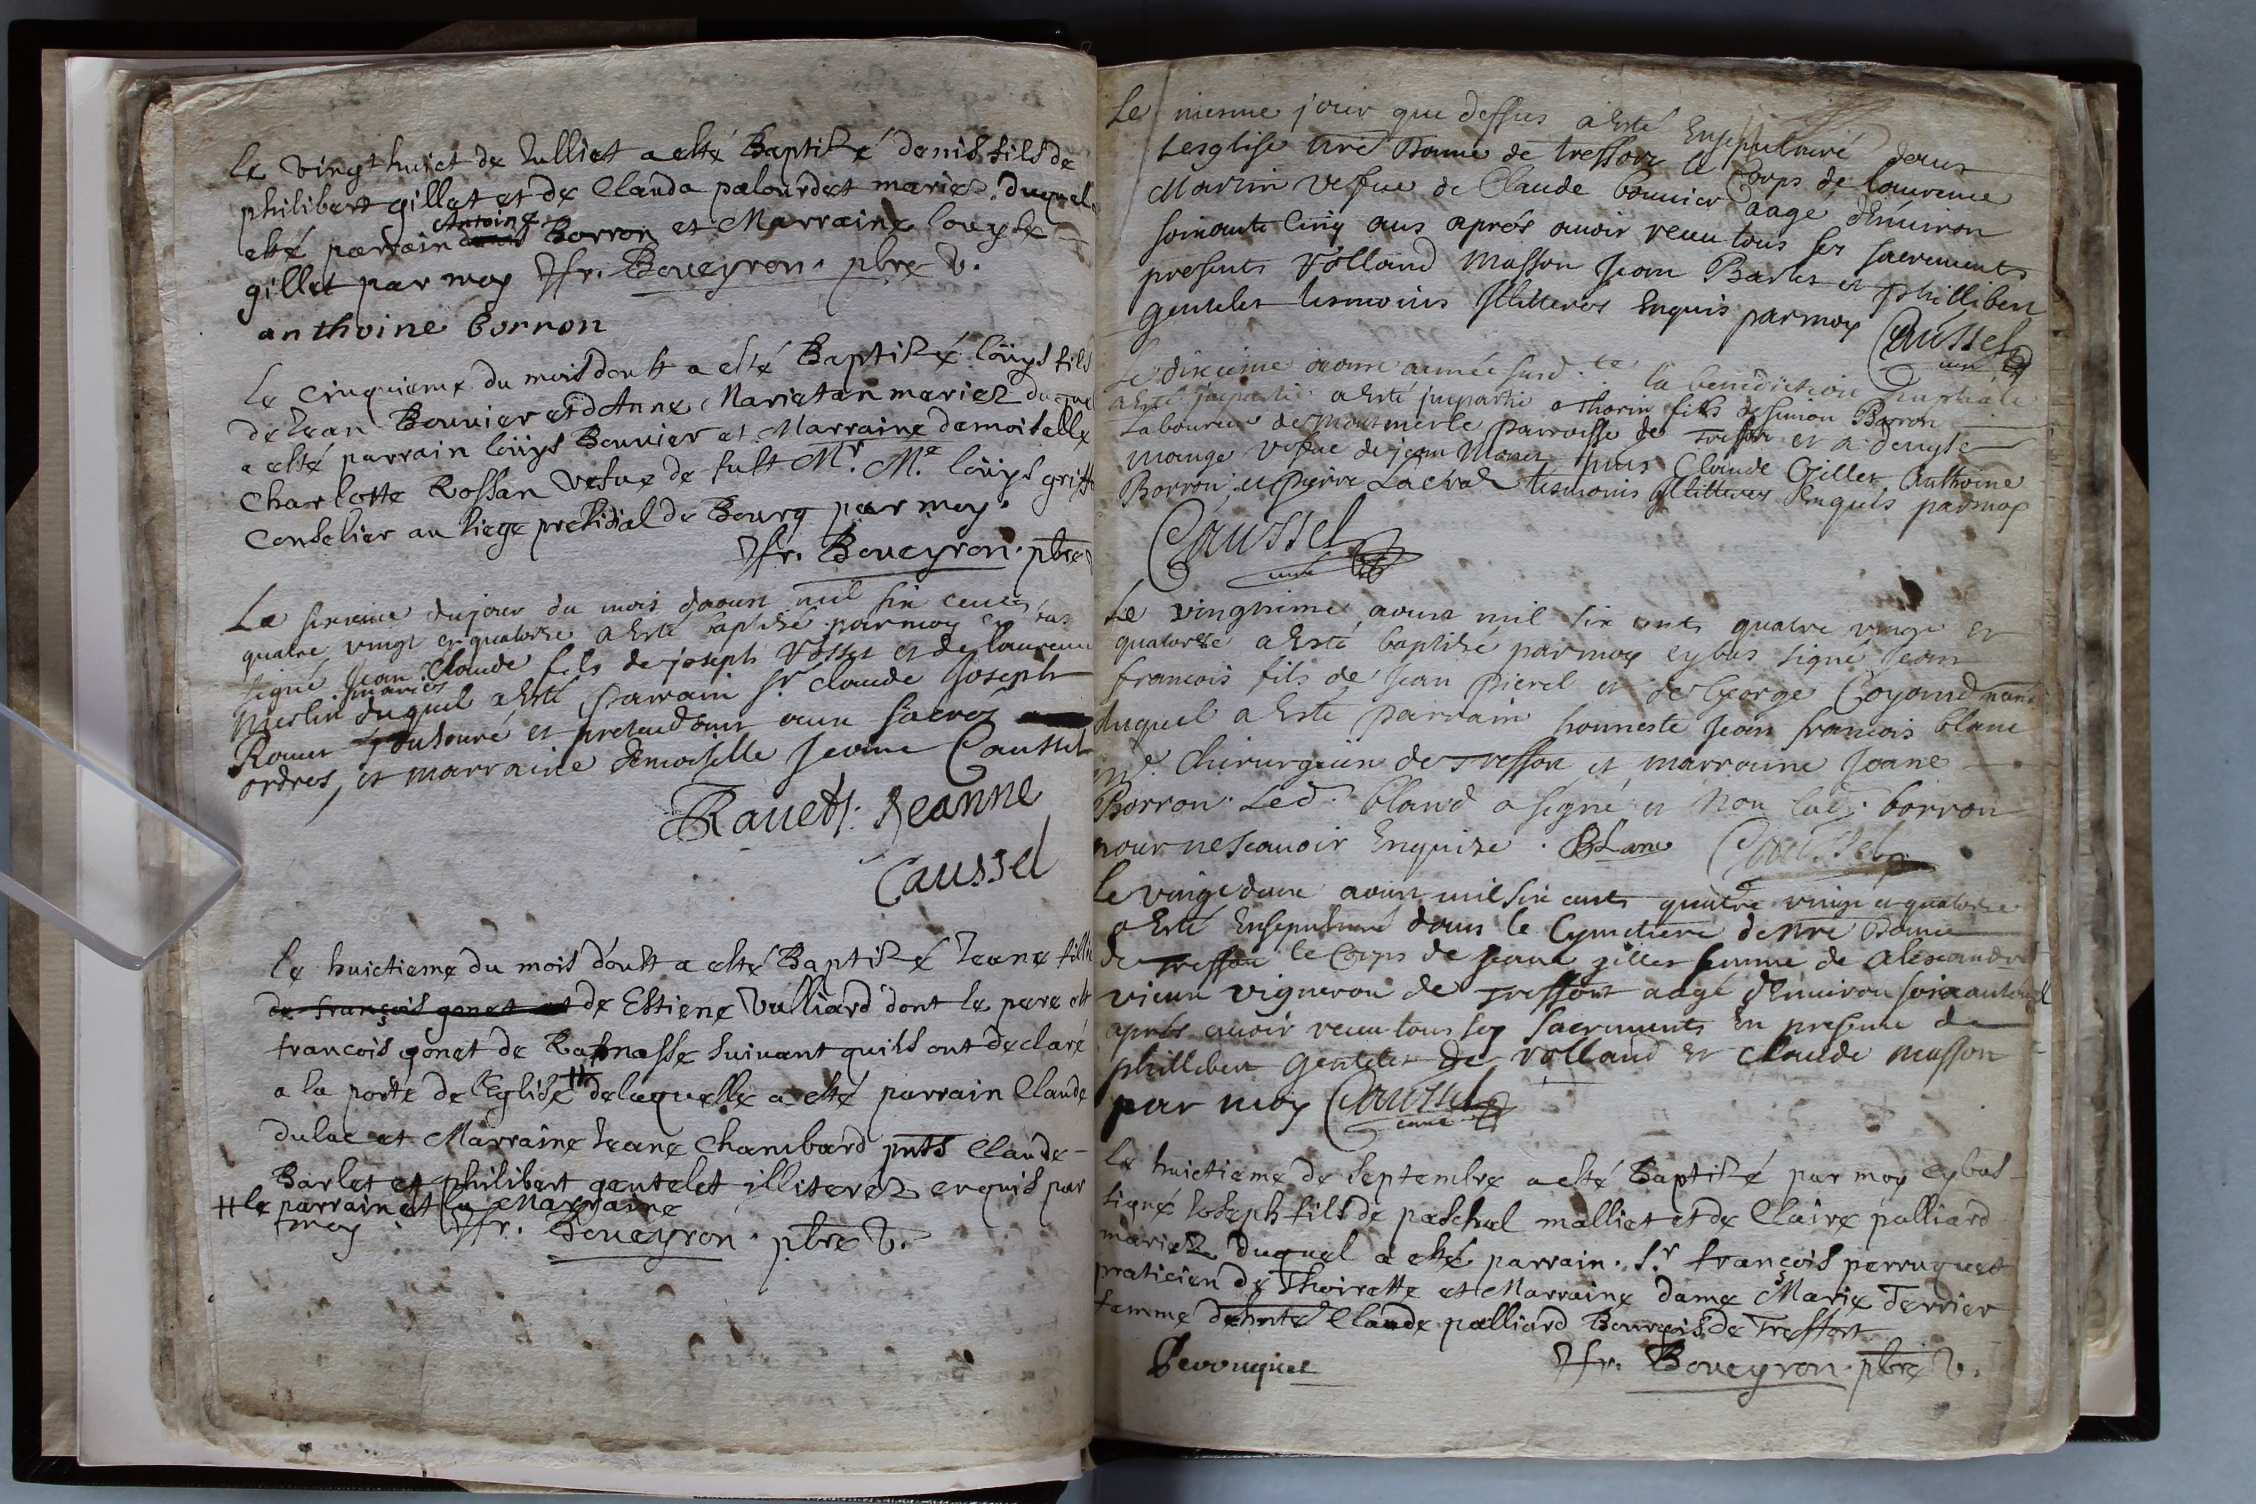 Le vingt huict de Julliet a esté Baptisé denis fils de
philibert gillet et de Clauda palourdet mariez. duquel a
esté parrain Antoine Borron et Marraine louyse
gillet par moy Jfr. Boueyron. pbre v.
anthoine borron
Le cinquieme du mois doust a esté Baptisé loüys fils
de Jean Bouuier et d'Anne Marietan mariez duquel
a esté parrain loüys Bouuier et Marraine demoiselle
Charlotte Rossan vefue de fust Mr. Me. loüys griffo
Conselier au siege presidial de Bourg par moy.
Jfr. Boueyron. pbre
Le sixieme dujour du mois daoust mil six cents
quatre vingt et quatorze a Esté baptisé par moy cy bas
signé Jean Claude fils de joseph Vosset et de laurence
Mieslin mariés duquel a Esté parrain Sr Claude Joseph
Rauet Tonsuré et pretendant aux sacrez
ordres, et marraine Demoiselle Jeanne Caussel
Rauet. Jeanne
Caussel
le huictieme du mois doust a esté Baptisé Jeane fille
de françois gonet et de Estiene Vulliard dont le pere est
francois gonet de Rasnasse suivant quils ont declaré
a la porte de l'Eglise # delaquelle a esté parrain Claude
dulac et Marraine Jeane Chambard pnts Claude
Barlet et philibert gentelet illiterez enquis par
# le parrain et la Marraine
moy Jfr. Boueyron. pbre v.
Le mesme jour que dessus a Esté Ensepulturé dans
Lesglise nre Dame de tressort le Corps de laurence
Martin vefue de Claude bouuier aagé d'Enuiron
soixante Cinq ans aprés auoir receu tous ses sacrements
presents Volland Masson Jean Barlet et phillibert
gentelet tesmoins Jllitteres Enquis par moy Caussel
curé
Le dixieme aoust année susd.te la benediction Nuptiale
a Esté jmpartie a Esté jmpartie a thorin fils de simon Borron
Laboureur de Montmerle parroisse de Tressort et a denyse
mange vefue de jean Monet pnts Claude Gillet Anthoine
Borron, et pierre Lacroix tesmoins Jllitteres Enquis par moy
Caussel
curé
Le vingtiime aoust mil six cents quatre vingt et
quatorze a Esté baptisé par moy cy bas signé Jean
francois fils de Jean pierel et de George Coyand mariés
duquel a Esté parrain honneste Jean francois blanc
md. Chirurgiin de Tressort et marraine Jeane
Borron. Led. bland a signé et Non lad. borron
pour ne scauoir Enquize. BLanc Caussel
le vingt deux aoust mil six cents quatre vingt et quatorze
a Esté Ensepulturé dans le Cymetiere de nre Dame
de Tressort le Corps de Jeane gillet femme de Alexandre
vieux vigneron de Tressort aagé d'Enuiron soixante
aprés auoir receu tous ses sacrements En presence de
phillibert Gentelet de Volland et Claude masson
par moy Caussel
curé
Le huictieme de Septembre a esté Baptisé par moy cy bas
signé Joseph fils de paschal malliet et de Claire palliard
mariez duquel a esté parrain. Sr. françois perruquet
praticien de Thoirette et Marraine dame Marie Terrier
femme de hnte Claude palliard Bourgois de Treffort
Perruquet
Jfr. Boueyron. pbre v.